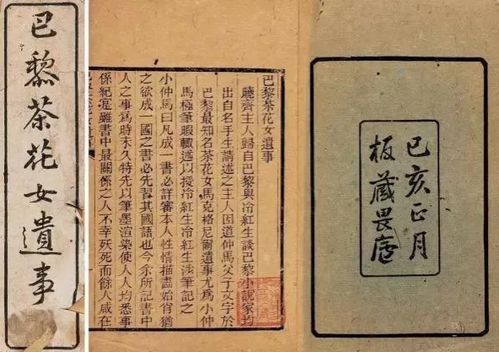 巴黎茶花女遺事
巴黎茶花女遺事
曉齋主人歸自巴黎與冷紅生談巴黎小說家均
出自名手生請述之主人因道仲馬父子文字於
巴黎最知名茶花女馬克格尼爾遺事尤為小仲
馬極筆暇輒述以授冷紅生冷紅生涉筆記之
小仲馬曰凡成一書必詳審本人性情描畫始肖猶
之欲成一國之書必先習其國語也今余所記書中
人之事為時未久特先以筆墨渲染使人人均悉事
係紀實雖書中最關係之人不幸夭死而餘人咸在
己亥正月
板藏畏廬